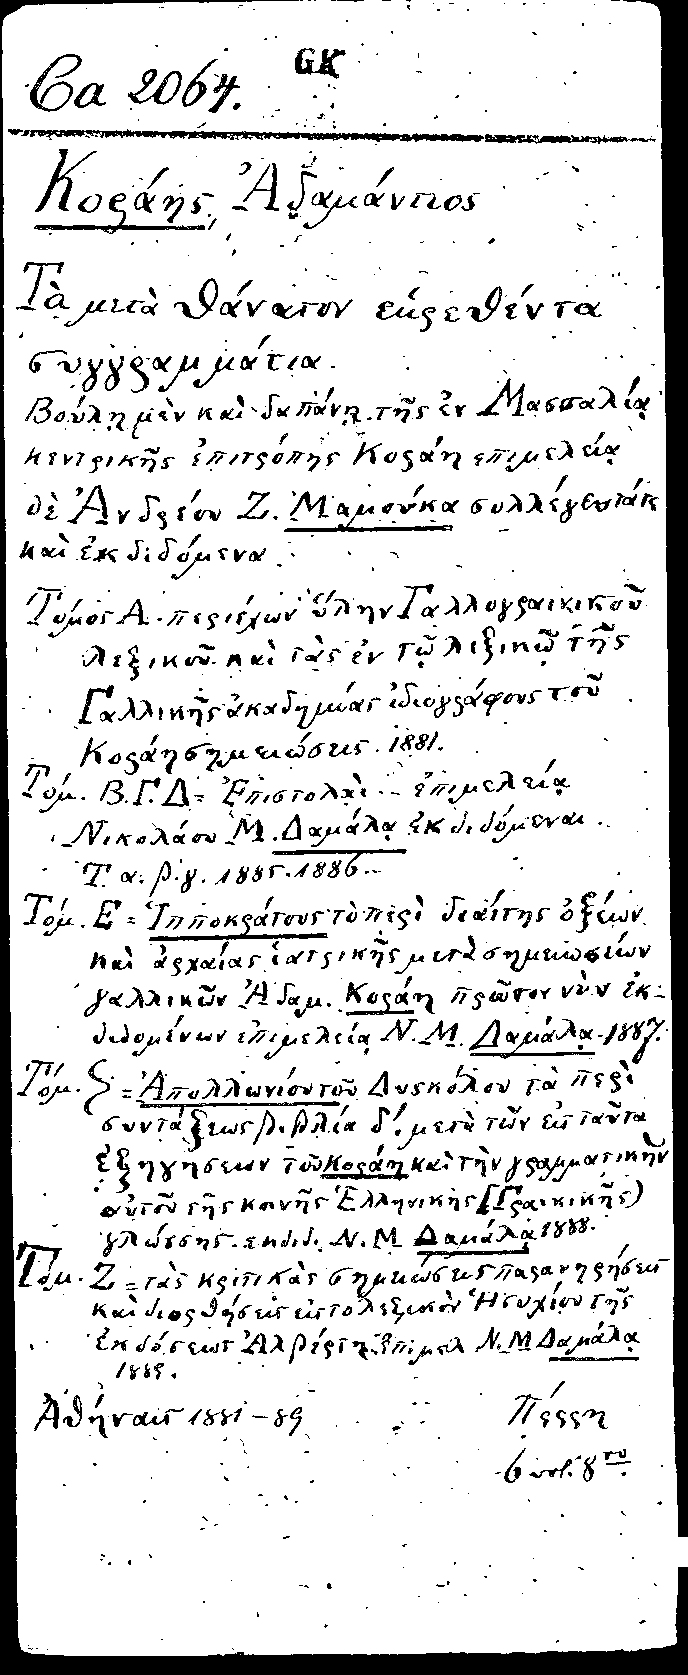 GK
Ca 2064.
Κοράης, Ἀδαμάντιος
Τὰ μετὰ θάνατον εὑρεθέντα
συγγραμμάτια.
Βουλῇ μὲν καὶ δαπάνῃ τῆς ἐν Μασσαλίᾳ
κεντρικῆς ἐπιτρόπης Κοράη ἐπιμελείᾳ
δὲ Ἀνδρέου Ζ. Μαμούκα συλλέγεντά τε
καὶ ἐκδιδόμενα.
Τόμος Α. περιέχων ὕλην Γαλλογραικικοῦ
λεξικοῦ καὶ τὰς ἐν τῷ λεξικῷ τῆς
Γαλλικῆς ἀκαδημίας ἰδιογράφους τοῦ
Κοράη σημειώσεις. 1881.
Τόμ. Β.Γ.Δ = Ἐπιστολαὶ – ἐπιμελείᾳ
Νικολάου Μ. Δαμάλα ἐκδιδόμεναι.
Τ. α. β. γ. 1885. 1886. –
Τόμ. Ε = Ἱπποκράτους τὸ περὶ διαίτης ὀξέων
καὶ ἀρχαίας ἰατρικῆς μετὰ σημειώσεων
γαλλικῶν Ἀδαμ. Κοράη πρῶτον νῦν ἐκ-
διδομένων ἐπιμελείᾳ Ν. Μ. Δαμάλα. 1887.
Τόμ. ς = Ἀπολλωνίου τοῦ Δυσκόλου τὰ περὶ
συντάξεως βιβλία δ'. μετὰ τῶν εἰς ταῦτα
ἐξηγήσεων τοῦ Κοράη καὶ τὴν γραμματικὴν
αὐτοῦ τῆς κοινῆς Ἑλληνικῆς (Γραικικῆς)
γλώσσης. εκδιδ. Ν. Μ Δαμάλα 1888.
Τόμ. Ζ = τὰς κριτικὰς σημειώσεις παρατηρήσεις
καὶ διορθήσεις εἰς τὸ λεξικὸν Ἡσυχίου τῆς
ἐκδόσεως Ἀλβέρτη. Ἐπιμελ Ν. Μ Δαμάλα
1889.
Ἀθήναις 1881 – 89
Πέρρη
6 vol. 8vo.